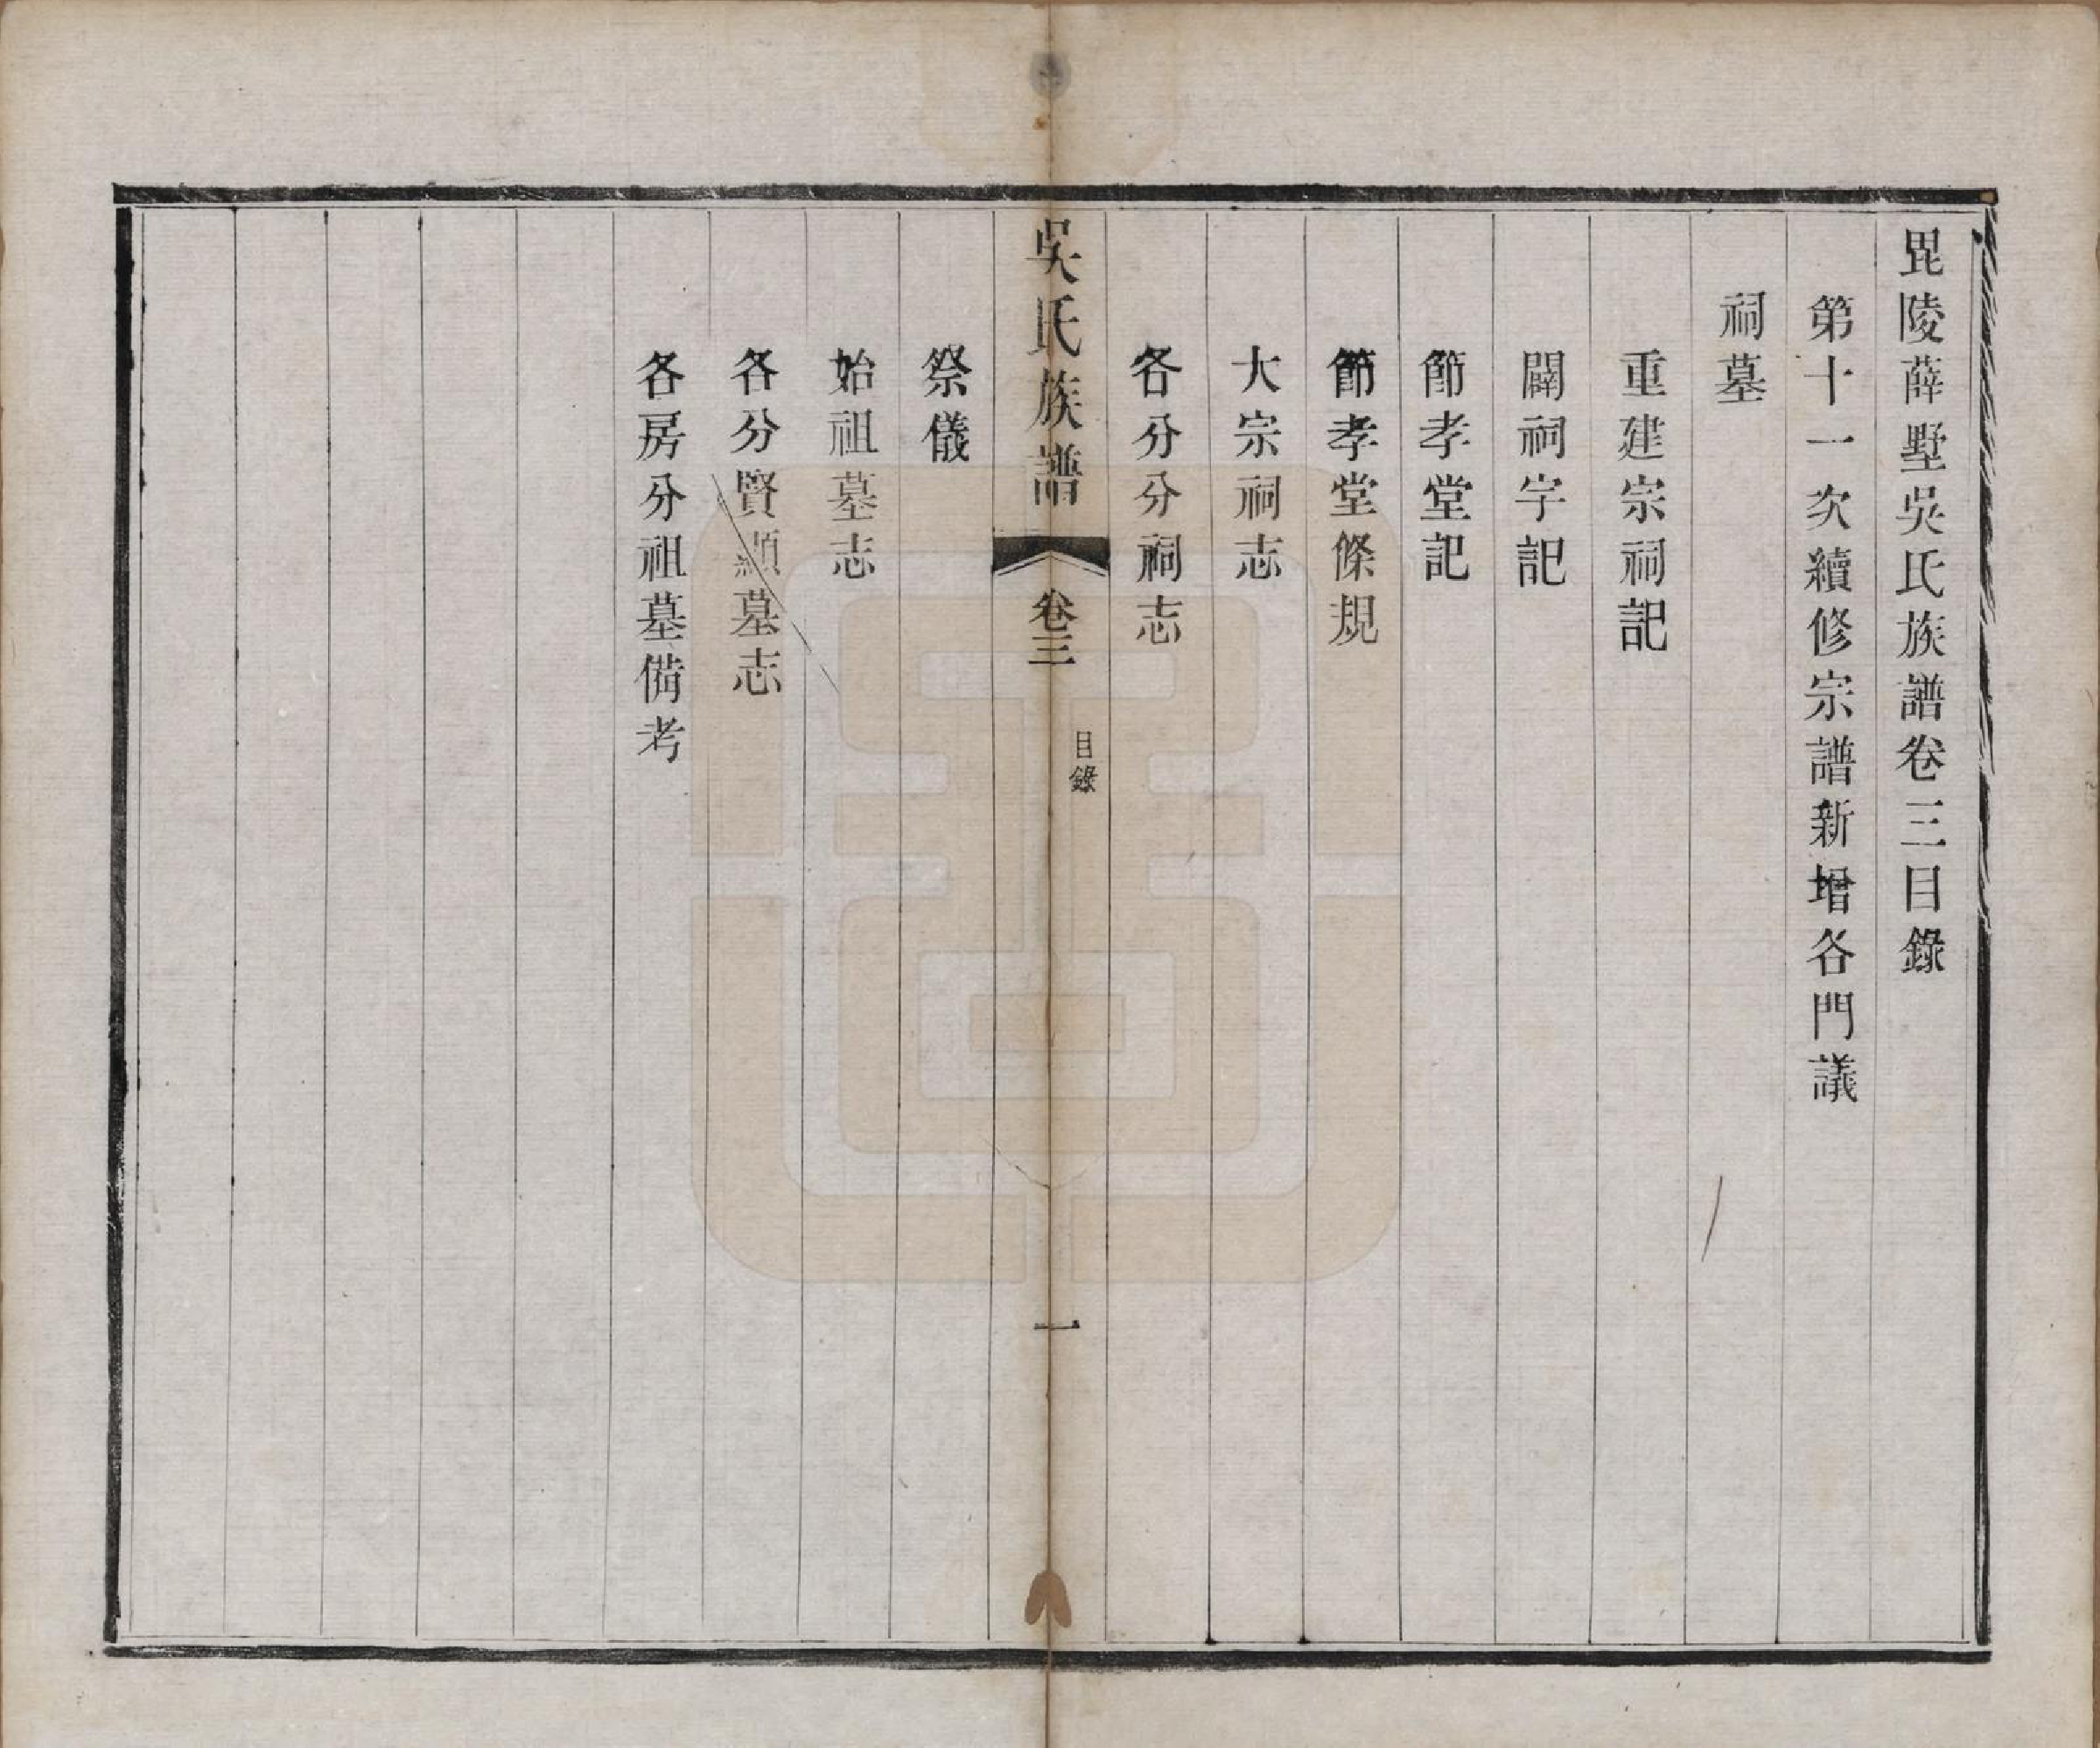 毘陵薛墅吳氏族譜卷三目錄
第十一次續修宗譜新增各門議
祠墓
重建宗祠記
闢祠字記
節孝堂記
節孝堂條規
大宗祠志
各分分祠志
吳氏族譜
卷三
目錄
一
祭儀
始祖墓志
各分賢顯墓志
各房分祖墓備考